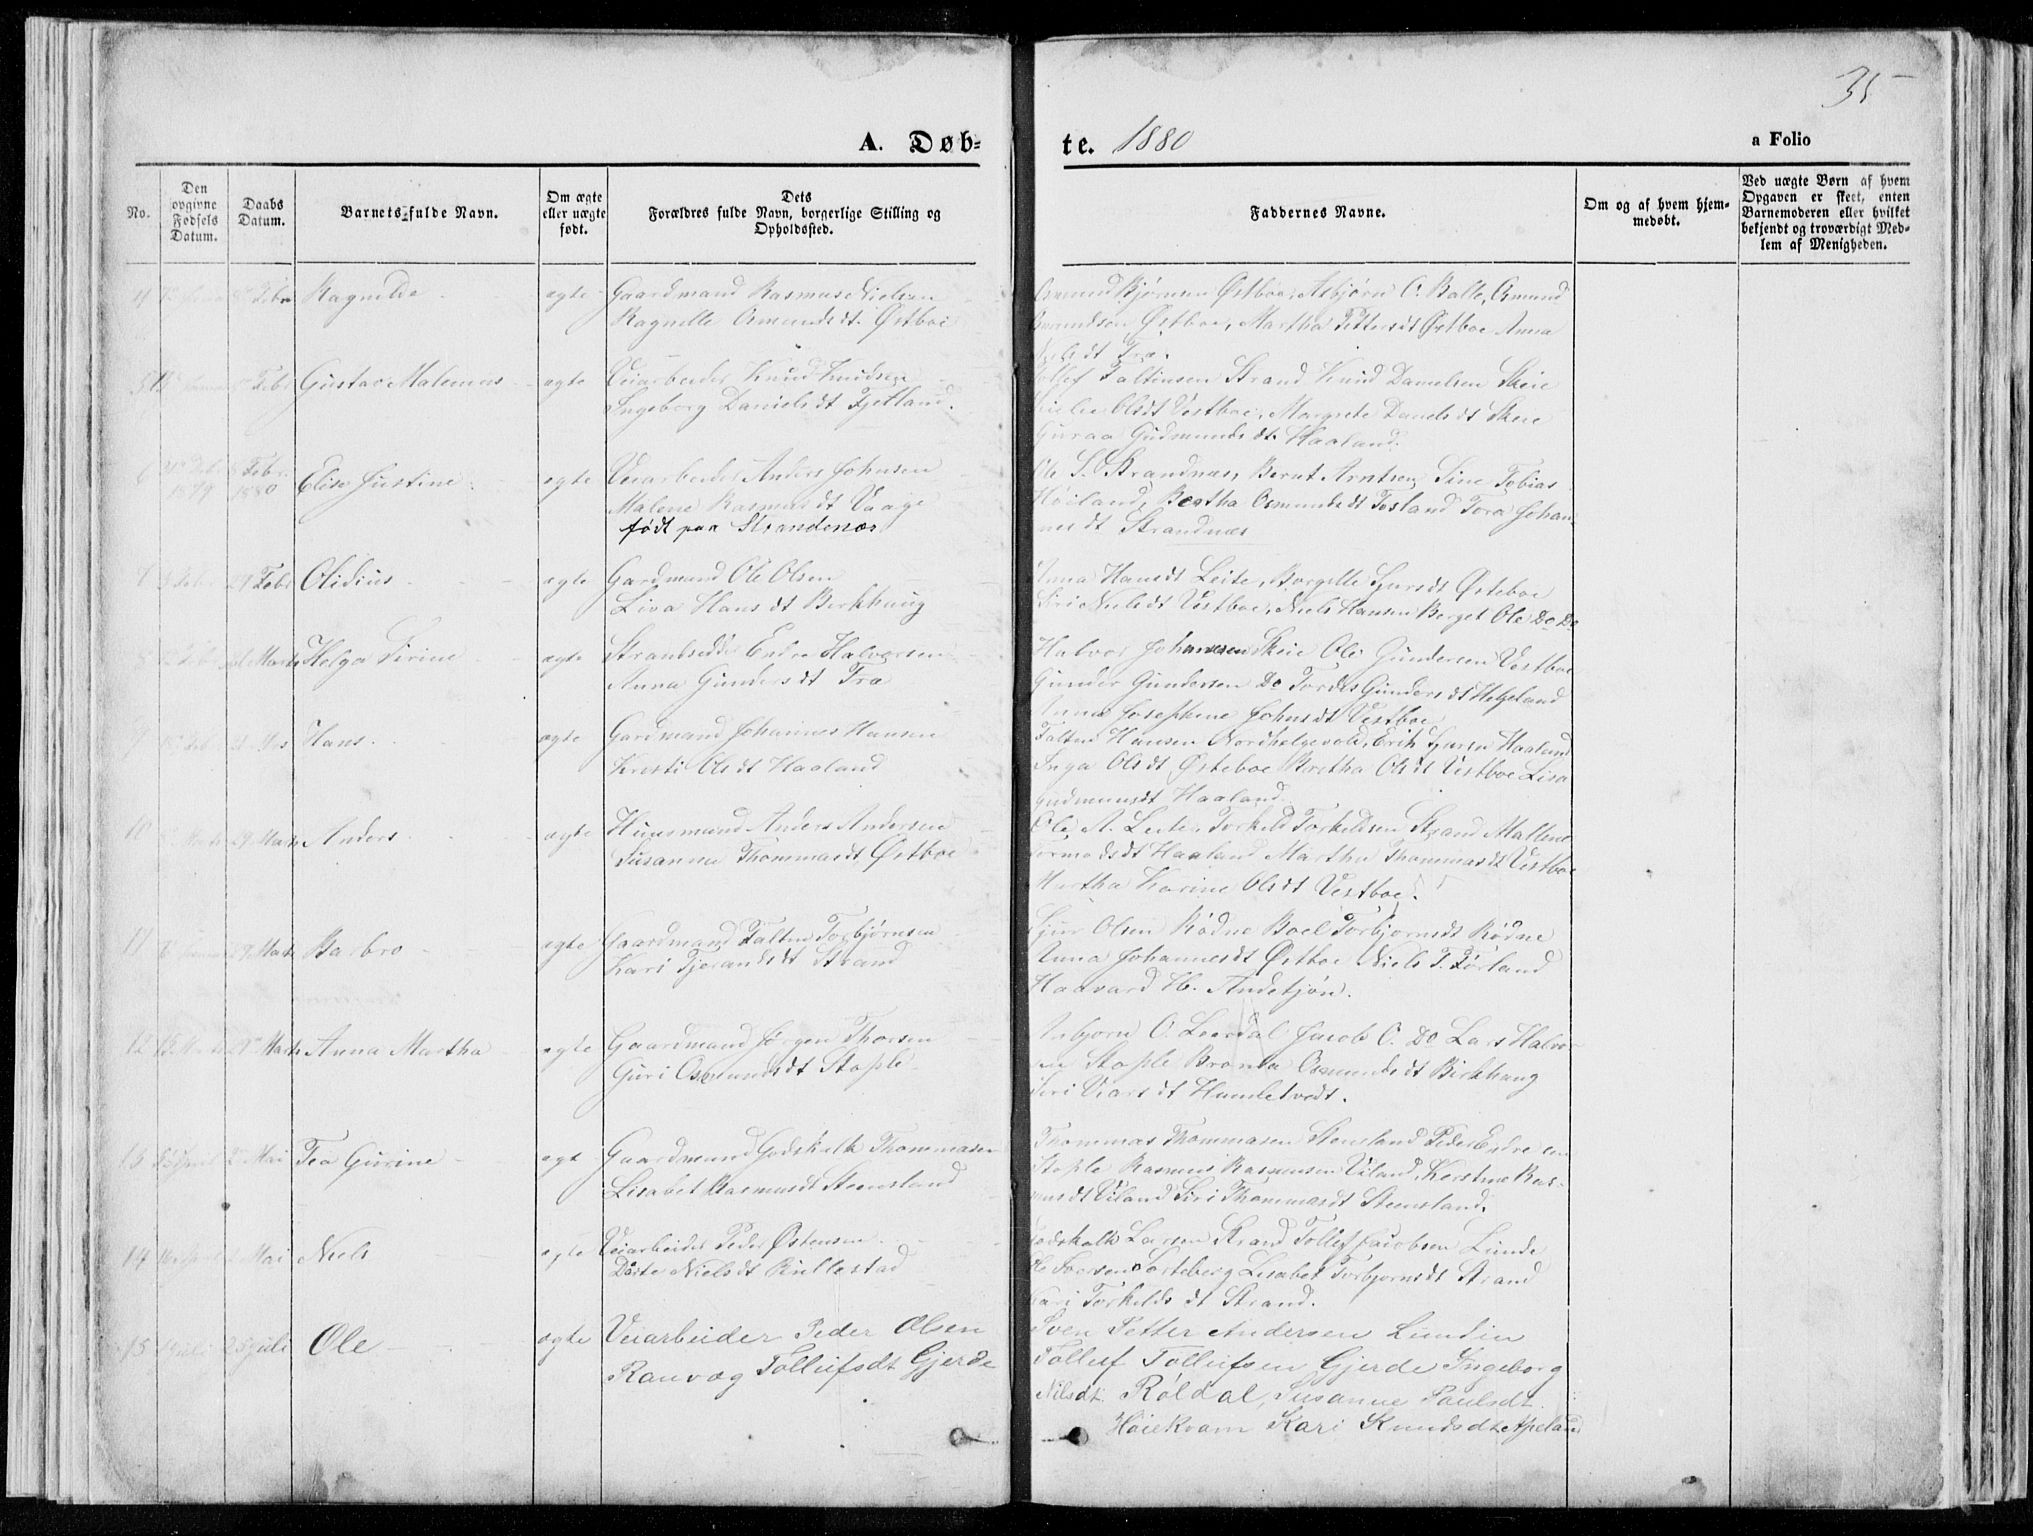 35
A. Døb-
te. 1880
a Folio
No.
Den
opgivne
Fødsels
Datum.
Daabs
Datum.
Barnets fulde Navn.
Om ægte
eller uægte
født.
Dets
Forældres fulde Navn, borgerlige Stilling og
Opholdssted.
Faddernes Navne.
Om og af hvem hjem-
medøbt.
Ved uægte Børn af hvem
Opgaven er skeet, enten
Barnemoderen eller hvilket
bekjendt og troværdigt Med-
lem af Menigheden.
4 Febr Ragnilde ægte Gaardmand Rasmus Nielsen
Ragnille Osmundsdt. Østboe
Bjørnsen Østboe, Asbjørn O. Balle, Osmund
Østboe, Martha Pettersdt Østboe Anna
Træ.
5 Febr Gustav Malenius ægte Veiarbeider Knud Knudsen
Ingeborg Danielsdt Fjetland.
Faltinsen Strand Knud Danielsen Skeie
Olsdt Vestboe, Margrete Danielsdt Skeie
Guroa Gudmundsdt. Haaland.
6 1879 Febr. 1880 Elise Justine ægte Veiarbeider Anders Johnsen
Malene Rasmusdt Vaage
født paa Strandenæs
Ole S. Strandnæs, Bernt Arntsen, Sine Tobias
Høiland, Bertha Osmundsdt Fosland Tora Johan-
nesdt Strandnæs
Febr 29 Febr Olidius ægte Gardmand Ole Olsen
Liva Hansdt Berkhaug
Anna Hansdt Leite, Borgille Sjursdt Østeboe
Siri Nielsdt Vestboe, Niels Hansen Berget Ole Do Do
Marts Helga Sirine ægte Strandsidder Endre Halvorsen
Anna Gundersdt Træ
Halvor Johannesen Skeie Ole Gundersen Vestboe
Gunder Gundersen Do Tordis Gundersdt Helgeland
Anna Josephine Johnsdt Vestboe
9 Hans. ægte Gardmand Johannes Hansen
Kristi Olsdt Haaland
Falten Hansen Nordhelgevold, Erik Sjursen Haaland
Inga Olsdt Østeboe Bertha Olsdt Vestboe Lisa
Gudmunsdt Haaland
10 29 Marts Anders ægte Huusmand Anders Andersen
Susanna Thommasdt Østboe
Ole A. Leite, Torkild Torkildsen Strand Mallene
Tormodsdt Haaland Martha Thommasdt Vestboe
Martha Karine Olsdt Vestboe.
11 29 Marts Barbro ægte Gaardmand Falten Torbjørnsen
Kari Tjerandsdt Strand
Sjur Olsen Rødne Boel Torbjornsdt Rødne
Anna Johannesdt Østboe Niels T. Førland
Haavard H. Andetjøn.
12 29 Marts Anna Martha ægte Gaardmand Jørgen Thorsen
Guri Osmundsdt Stople
Asbjorn O. Leirdal Jacob O. Do Lars Halvor-
sen Stople Osmundsdt Birkhaug
Siri Viarsdt Humletvedt.
13 2 Mai Tea Gurine ægt Gaardmand Godskalk Thommasen
Lisabet Rasmusdt Steensland
Thommas Thommasen Stensland Peder Endresen
Stople Rasmus Rasmusen Viland, Kerstine Ras-
musdt Viland Siri Thommasdt Steensland.
14 Mai Niels ægte Veiarbeider Peder Østensen
Dorte Nielsdt Rullestad
Godskalk Larsen Strand Tollef Jacobsen Lunde
Lisabet Torbjornsdt Strand
Kari Torkildsdt Strand.
15 juli 25 juli Ole ægte Veiarbeider Peder Olsen
Ranvæg Tolleifsdt Gjerde
Sven Petter Andersen Lundin
Tolleif Tolleifsen Gjerde Ingeborg
Nilsdt. Røldal, Susanne Paulsdt.
Høiekvam Kari Knudsdt Apeland